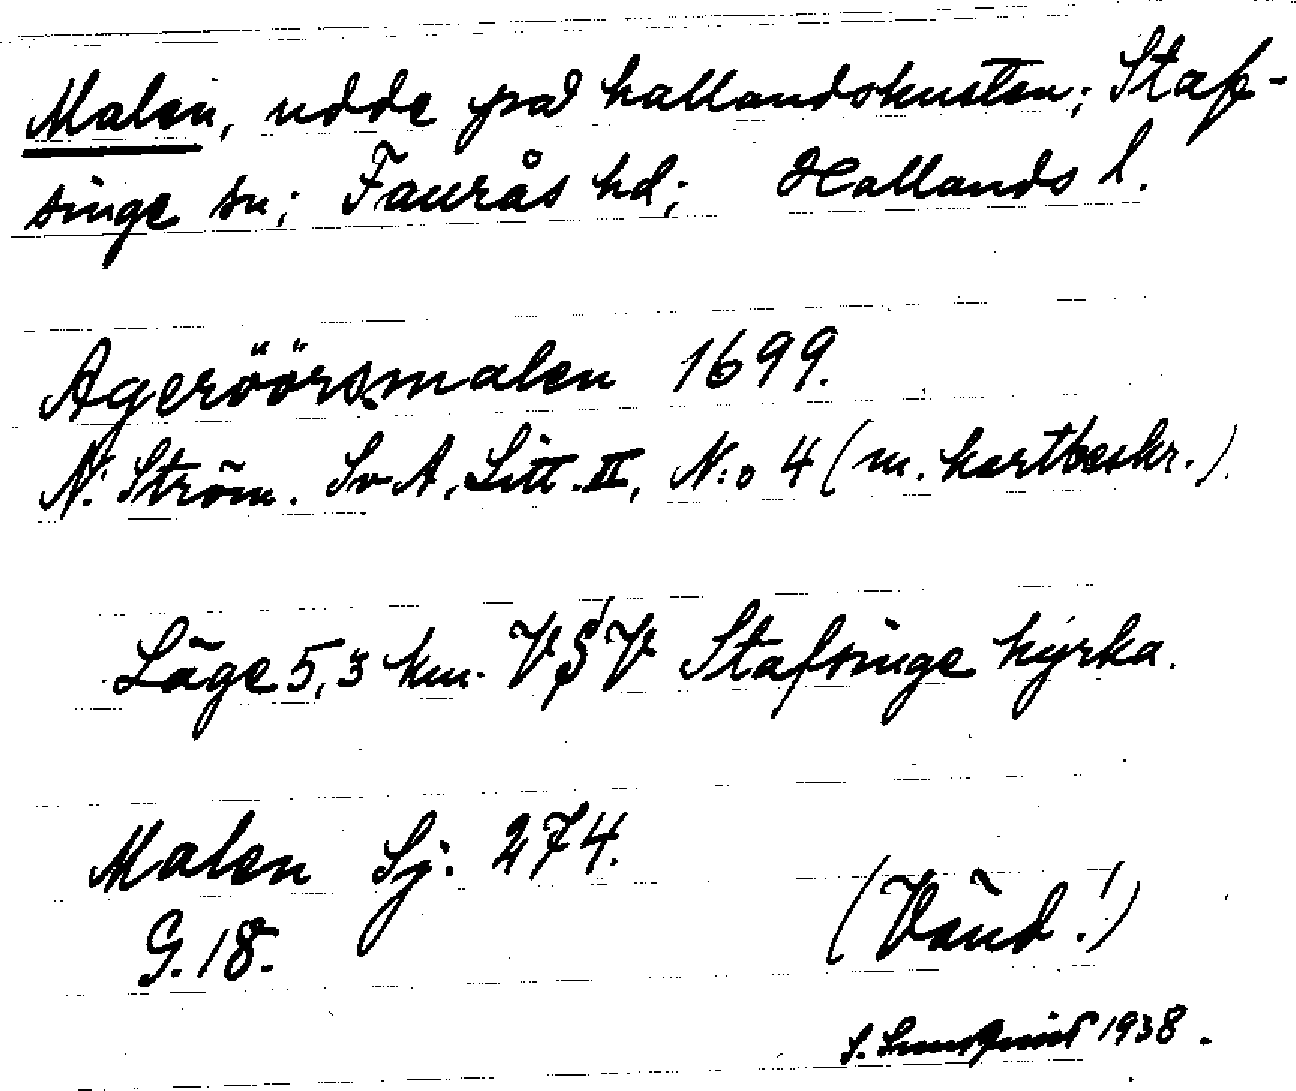 Malen, udde på hallandskusten; Staf-
singe sn; Faurås hd; Hallands l.
Ageröörsmalen 1699.
N. Ström. Sv. A, Litt. II, N:o 4 (m. kartbeskr.)
Läge 5,3 km. VSV Stafsinge kyrka.
Malen Sj. 274.
G. 18.
(Vänd!)
1938.